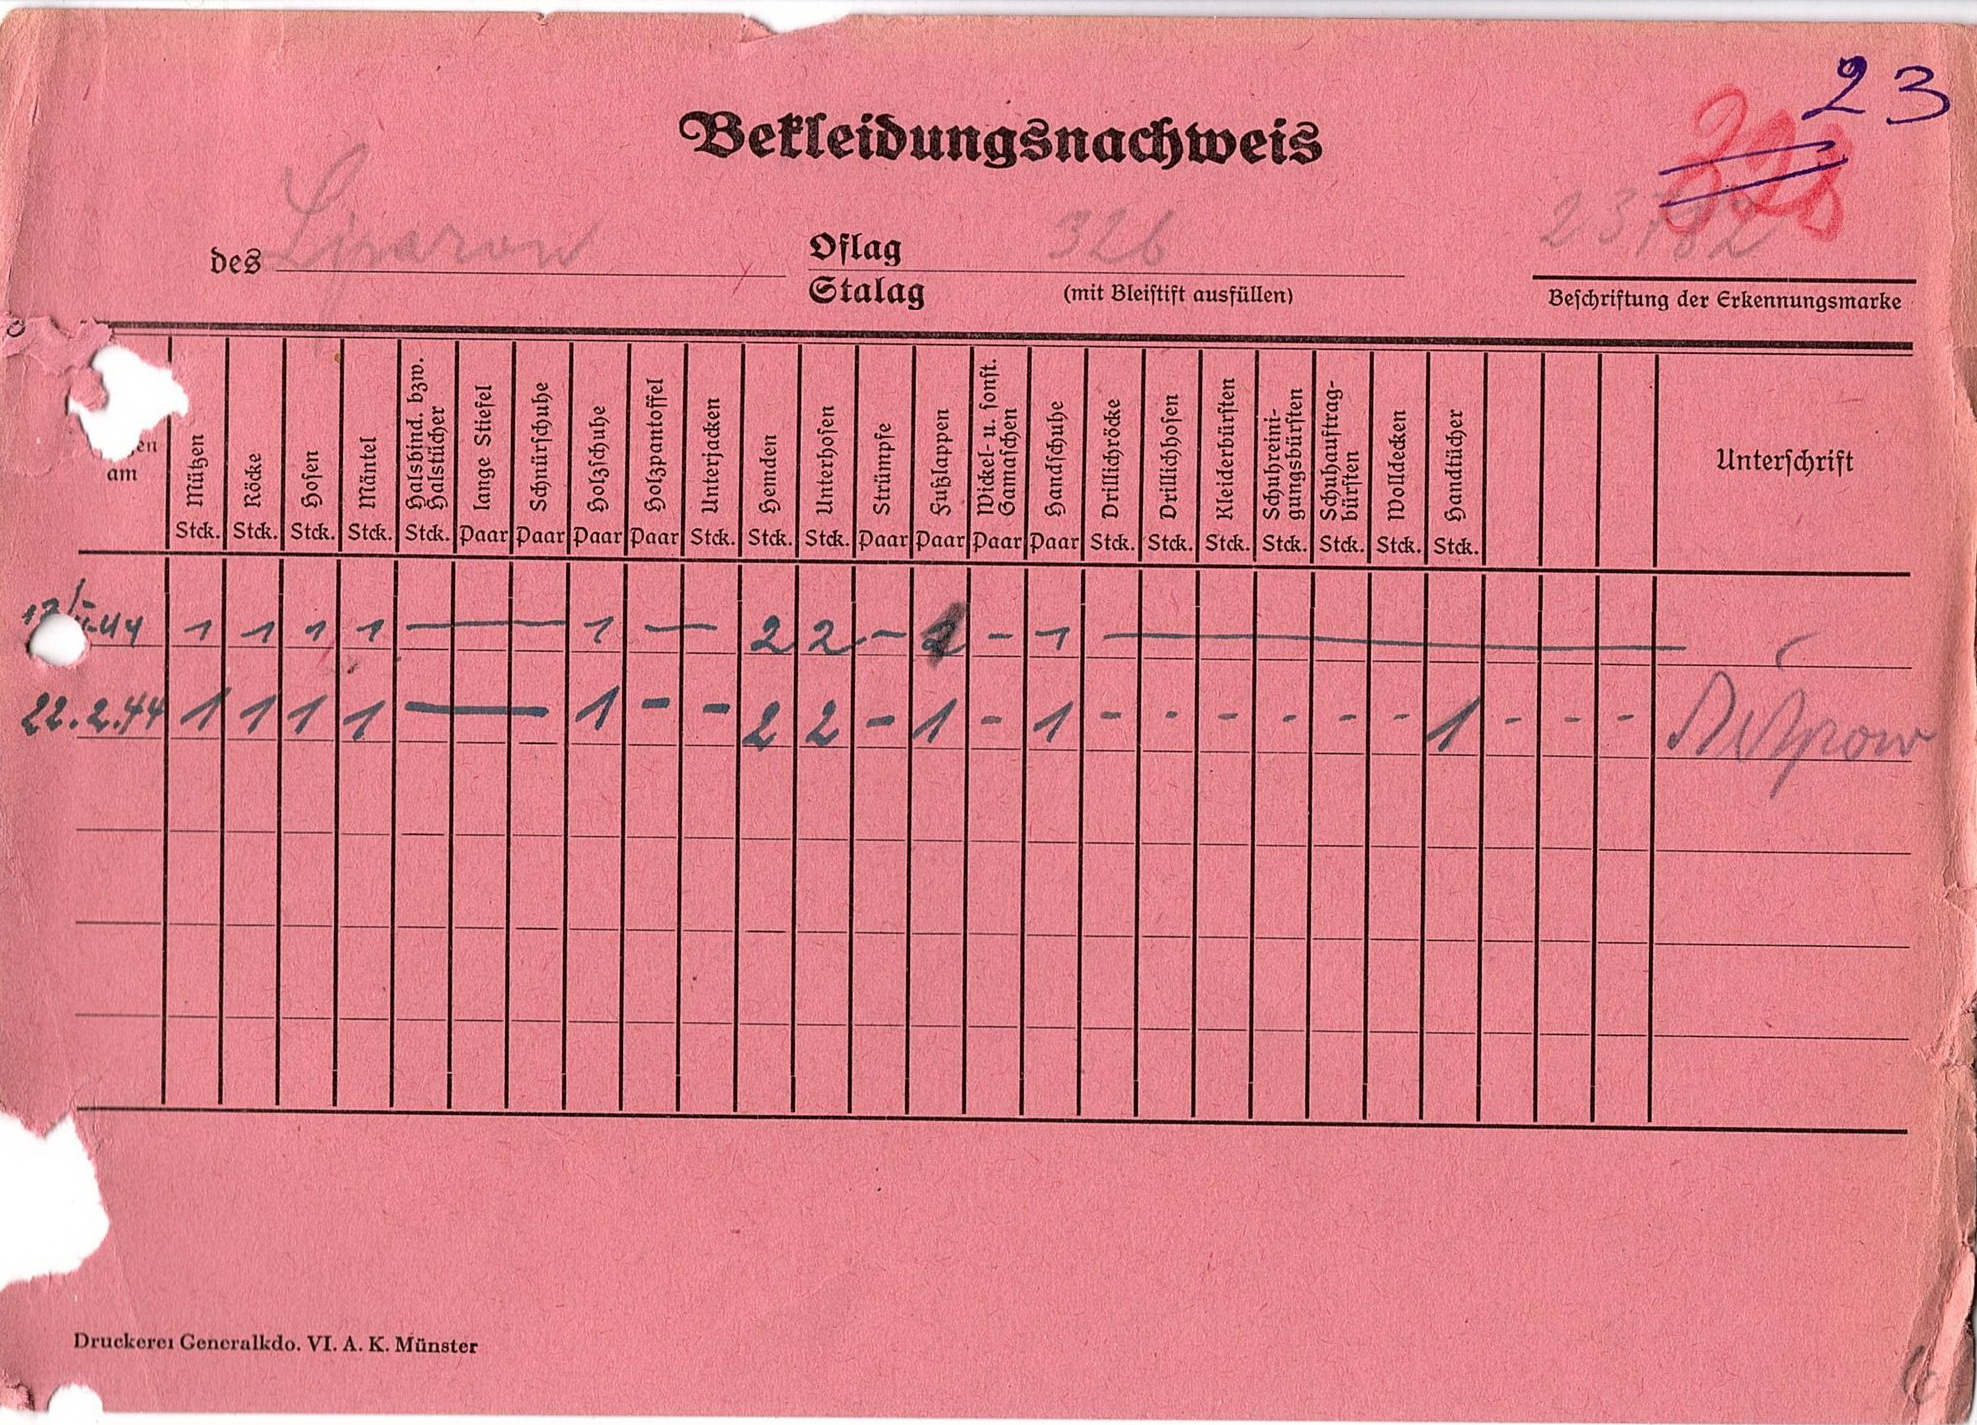 23
Bekleidungsnachweis
des Liparow Oflag 326
Stalag (mit Bleistift ausfüllen) Beschriftung der Erkennungsmarke
am Mützen Stck. Röcke Stck. Hosen Stck. Mäntel Stck. Halsbind. bzw. Halstücher Stck. lange Stiefel Paar Schnürschuhe Paar Holzschuhe Paar Holzpantoffel Paar Unterjacken Stck. Hemden Stck. Unterhosen Stck. Strümpfe Paar Fußlappen Paar Wickel- u. sonst. Gamaschen Paar Handschuhe Paar Drillichröcke Stck. Drillichhosen Stck. Kleiderbürsten Stck. Schuhreinigungsbürsten Stck. Schuhauftragbürsten Stck. Wolldecken Stck. Handtücher Stck. Unterschrift
44 1 1 1 1 — 1 — 2 2 - - 1 —
22.2.44 1 1 1 1 — 1 - - 2 2 - 1 - 1 - - - - - - 1 - - -
Druckerei Generalkdo. VI. A. K. Münster